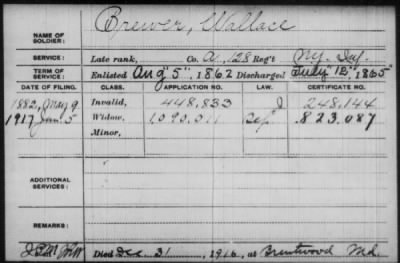 Brewer, Wallace
NAME OF SOLDIER:
SERVICE: Late rank, Co. A, 128 Reg't N.Y. Inf.
TERM OF SERVICE: Enlisted Aug "5", 1862 Discharged July "12", 1865
DATE OF FILING. CLASS. APPLICATION NO. LAW. CERTIFICATE NO.
1882, May 9 Invalid, 448,833 248,144
1917 Jan. 5 Widow, 1090,011 823,087
Minor,
ADDITIONAL SERVICES:
REMARKS:
Died Dec. 31, 1916, at Brentwood Md.